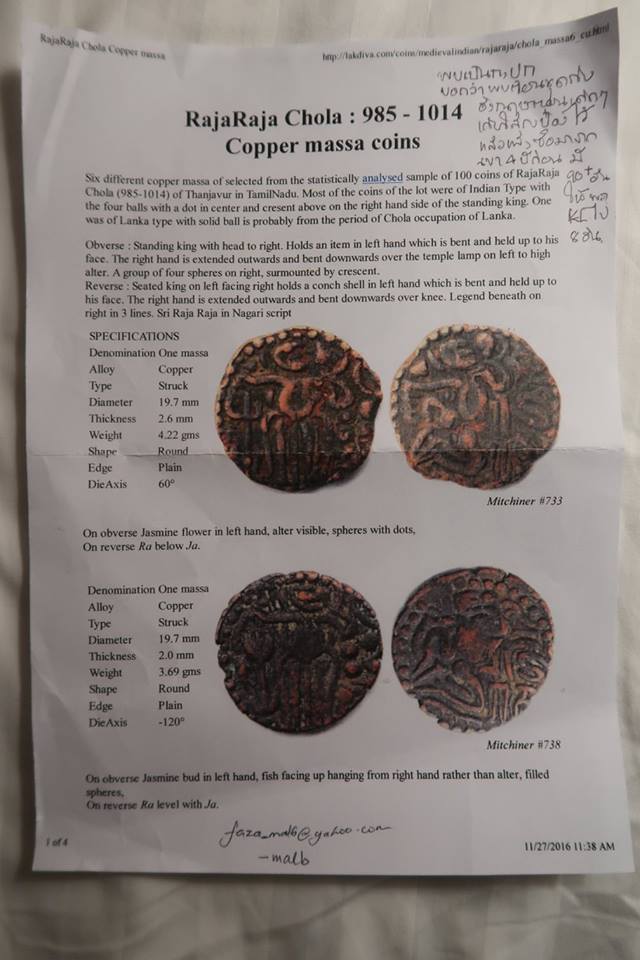 RajaRaja Chola Copper massa
http://lakdiva.com/coins/medievalindian/rajaraja/chola_massa6_cu.html
RajaRaja Chola : 985 - 1014
Copper massa coins
Six different copper massa of selected from the statistically analysed sample of 100 coins of RajaRaja
Chola (985-1014) of Thanjavur in TamilNadu. Most of the coins of the lot were of Indian Type with
the four balls with a dot in center and cresent above on the right hand side of the standing king. One
was of Lanka type with solid ball is probably from the period of Chola occupation of Lanka.
Obverse : Standing king with head to right. Holds an item in left hand which is bent and held up to his
face. The right hand is extended outwards and bent downwards over the temple lamp on left to high
alter. A group of four spheres on right, surmounted by crescent.
Reverse : Seated king on left facing right holds a conch shell in left hand which is bent and held up to
his face. The right hand is extended outwards and bent downwards over knee. Legend beneath on
right in 3 lines. Sri Raja Raja in Nagari script
SPECIFICATIONS
Denomination One massa
Alloy Copper
Type Struck
Diameter 19.7 mm
Thickness 2.6 mm
Weight 4.22 gms
Shape Round
Edge Plain
DieAxis 60°
Mitchiner #733
On obverse Jasmine flower in left hand, alter visible, spheres with dots,
On reverse Ra below Ja.
Denomination One massa
Alloy Copper
Type Struck
Diameter 19.7 mm
Thickness 2.0 mm
Weight 3.69 gms
Shape Round
Edge Plain
DieAxis -120°
Mitchiner #738
On obverse Jasmine bud in left hand, fish facing up hanging from right hand rather than alter, filled
spheres,
On reverse Ra level with Ja.
faza_mal6@yahoo.com
1 of 4
11/27/2016 11:38 AM